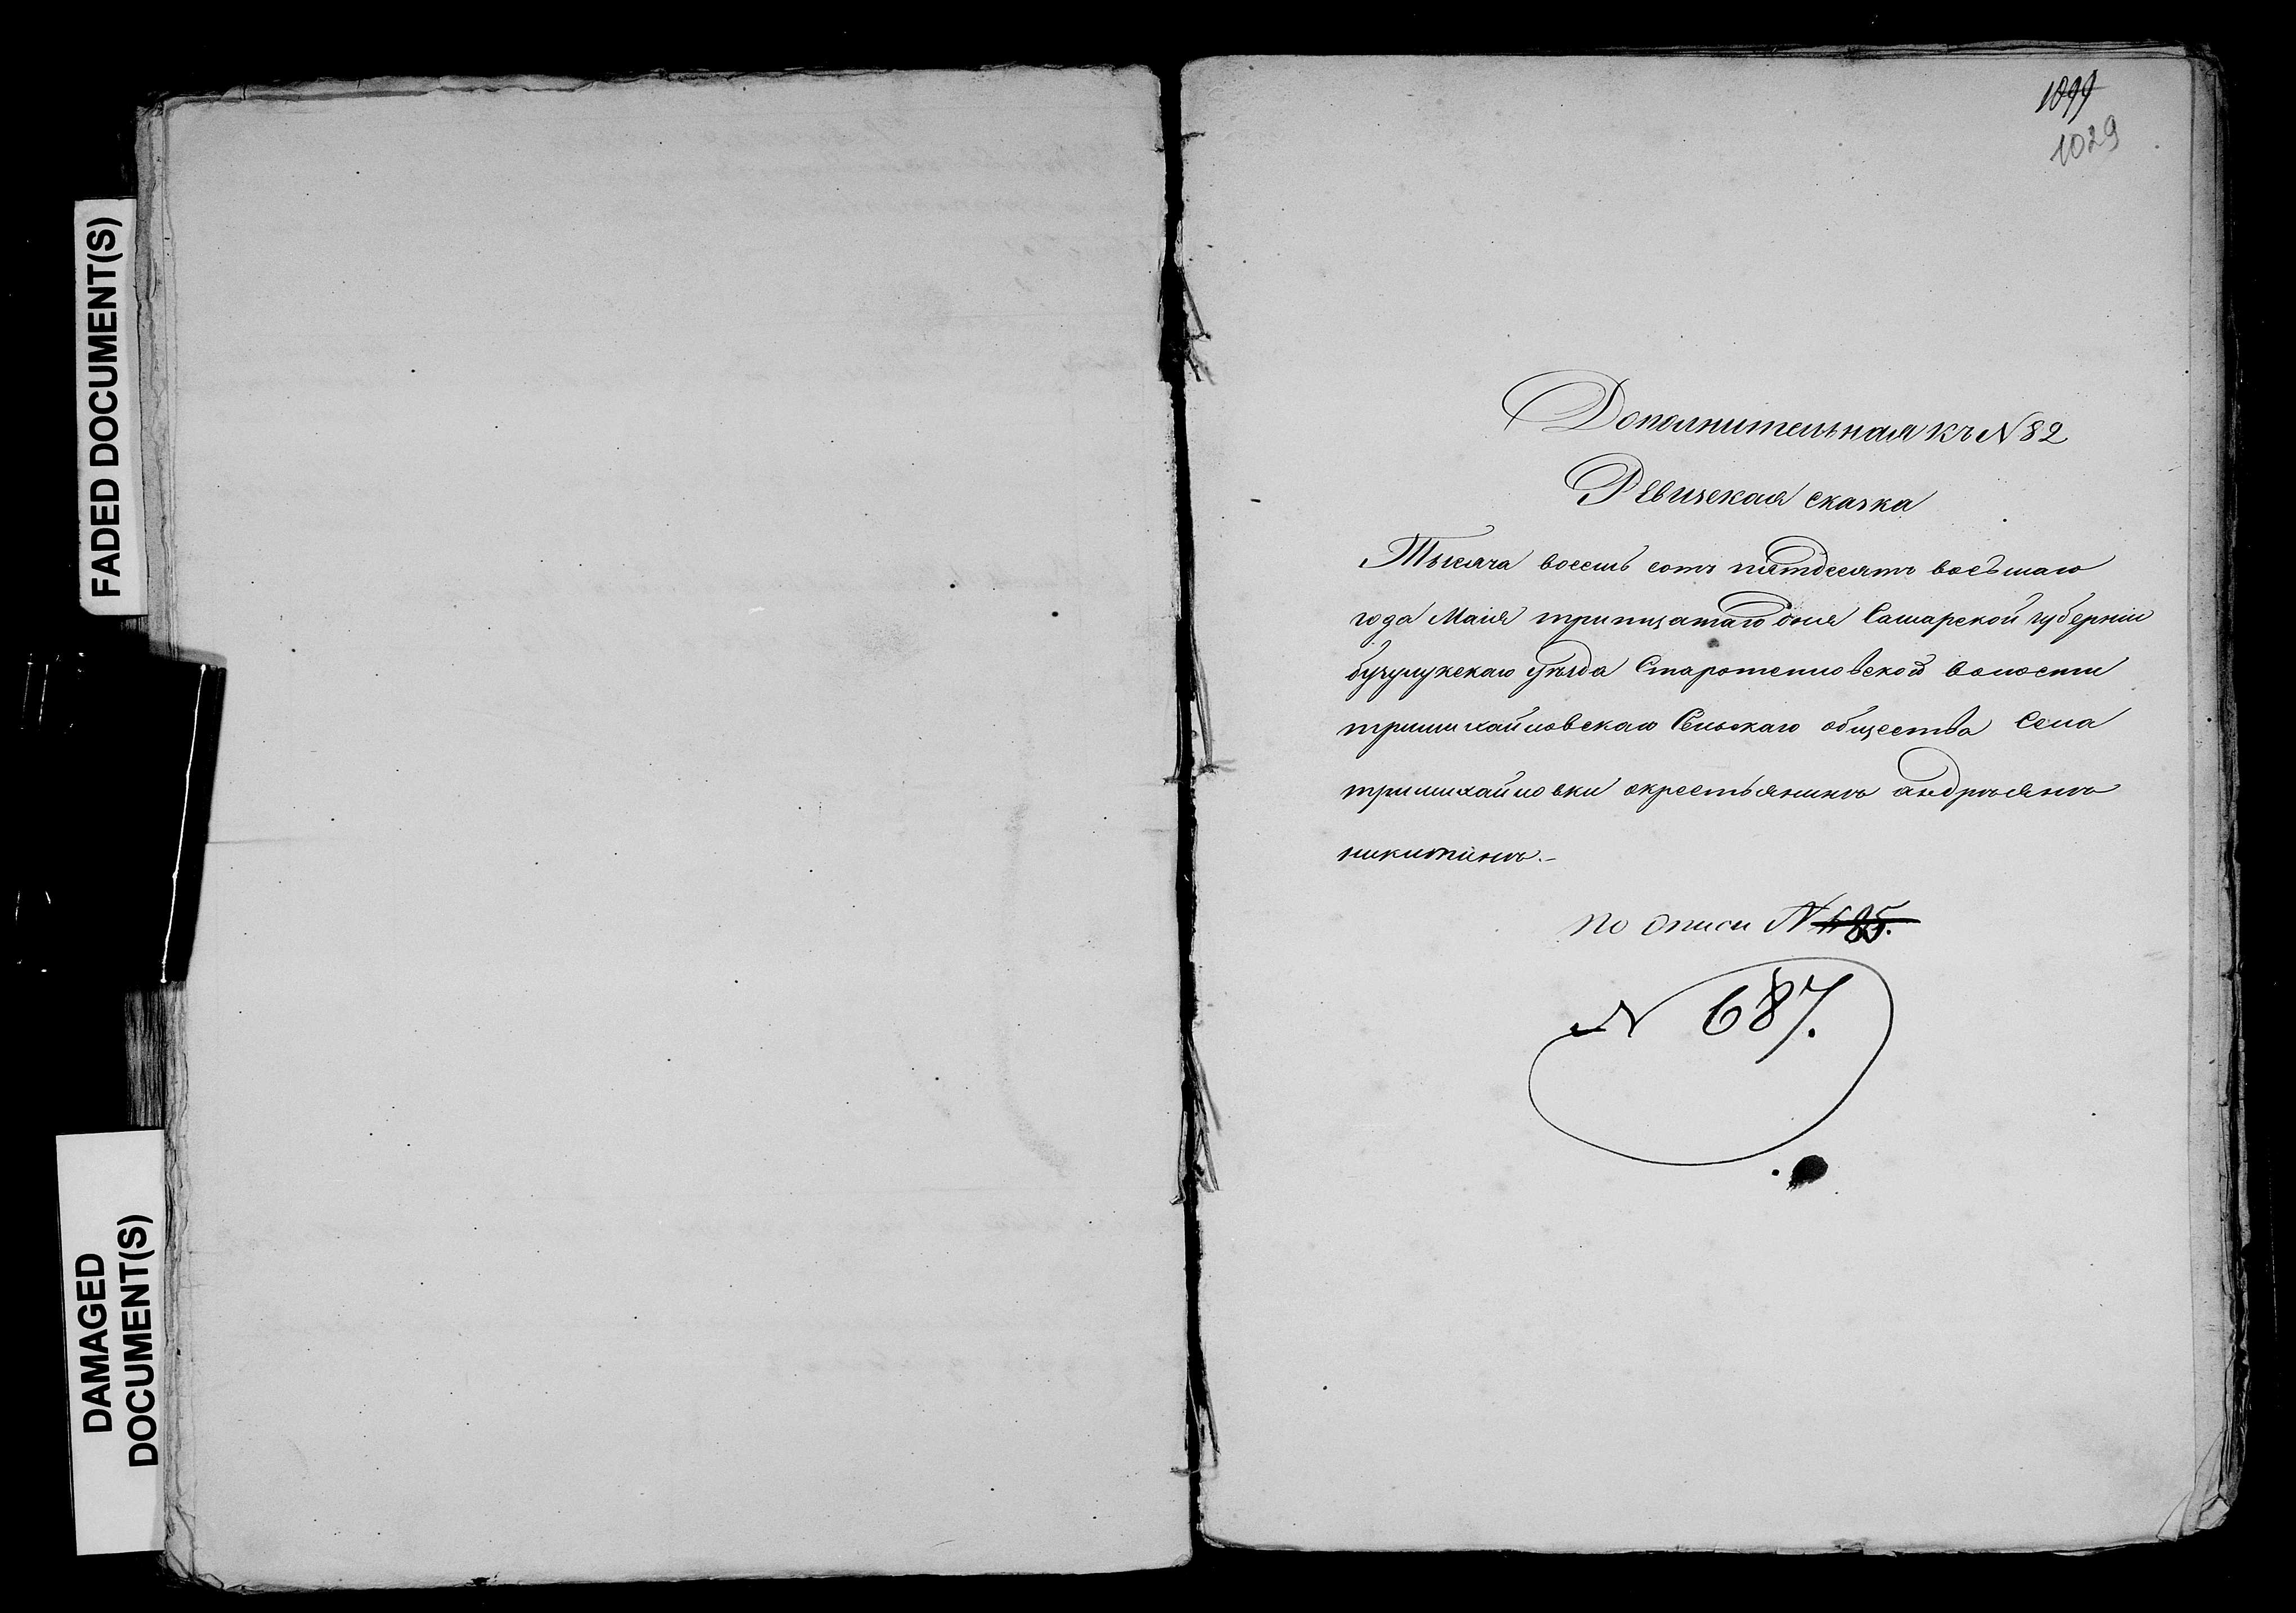 FADED DOCUMENT(S)
DAMAGED
DOCUMENT(S)
1029
Дополнительная къ № 82
Ревизская сказка
Тысяча восемь сотъ пятдесятъ восьмаго
года Маия трититцатаго дня Самарской губернии
бузулукскаго уѣзда Старотепловской волости
тримихайловскаго Сельскаго общества Села
тримихайловки окрестьянинъ андрьянъ
никитинъ.-
по описи №
№ 687.